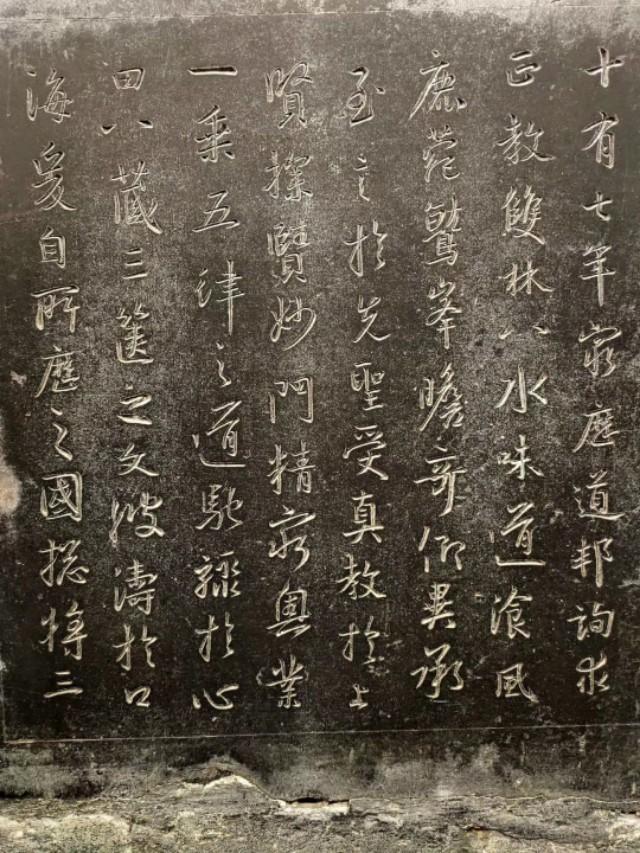 十有七年窮歷道邦詢求
正教雙林八水味道飡風
鹿菀鷲峯瞻奇仰異承
至言於先聖受真教於上
賢探賾妙門精窮奧業
一乘五律之道馳驟於心
田八藏三篋之文波濤於口
海爰自所歷之國摠將三